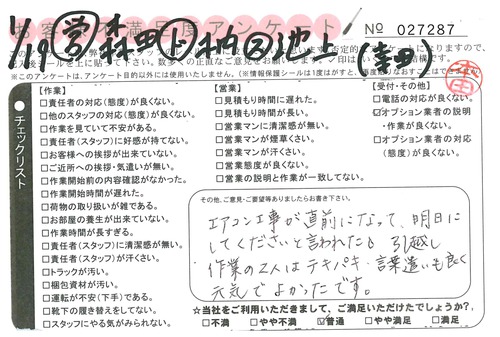 1/19 営 森田 ト 柄 ス 池上 (幸田)
お客様不満足度アンケート
No 027287
チェックリスト
【作業】
□責任者の対応(態度)が良くない。
□他のスタッフの対応(態度)が良くない。
□作業を見ていて不安がある。
□責任者(スタッフ)に好感が持てない。
□お客様への挨拶が出来ていない。
□ご近所への挨拶・気遣いが無い。
□作業開始前の内容確認がなかった。
□作業開始時間が遅れた。
□荷物の取り扱いが雑である。
□お部屋の養生が出来ていない。
□作業時間が長すぎる。
□責任者(スタッフ)に清潔感が無い。
□責任者(スタッフ)が汗くさい。
□トラックが汚い。
□梱包資材が汚い。
□運転が不安(下手)である。
□靴下の履き替えをしてない。
□スタッフにやる気がみられない。
【営業】
□見積もり時間に遅れた。
□見積もり時間が長い。
□営業マンに清潔感が無い。
□営業マンが煙草くさい。
□営業マンが汗くさい。
□営業態度が良くない。
□営業の説明と作業が一致してない。
【受付・その他】
□電話の対応が良くない。
☑オプション業者の説明
・作業が良くない。
□オプション業者の対応
(態度)が良くない。
その他、ご意見・ご要望等ありましたらお書き下さい。
エアコン工事が直前になって、明日に
してくださいと言われた。引越し
作業の2人はテキパキ、言葉遣いも良く
元気でよかったです。
☆当社をご利用いただきまして、ご満足いただけたでしょうか?
□不満 □やや不満 ☑普通 □やや満足 □満足